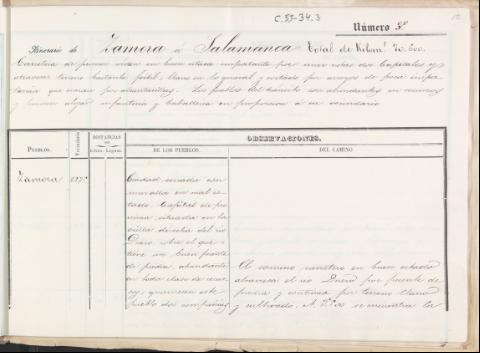 C.59-34.3
Número 3º
Itinerario de Zamora á Salamanca total de Kilomˢ 70.600.
Carretera de primer orden en buen estado importante por unir estas dos Capitales y
atravesar terreno bastante fértil, llano en lo general y cortado por arroyos de poca impor-
tancia que marcan por alcantarillas. Los pueblos del tránsito son abundantes en recursos
y pueden alojar infantería y caballería en proporción á su vecindario
PUEBLOS.
Vecindario
DISTANCIAS
EN
Kilóm. Leguas.
OBSERVACIONES.
DE LOS PUEBLOS.
DEL CAMINO
Zamora
Ciudad cercada con
muralla en mal es-
tado. Capital de pro-
vincia situada en la
orilla derecha del rio
Duero sobre el que
tiene un buen puente
de piedra, abundante
en toda clase de recur-
sos, guarnecen este
pueblo dos compañias
El camino carretero en buen estado
atraviesa el rio Duero por puente de
piedra y continua por terreno llano
y cultivado. A se encuentra la